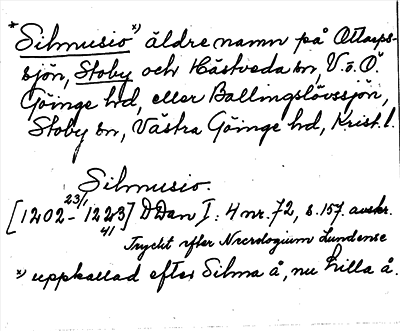 *Silmusio*) äldre namn på Ottarps-
sjön, Stoby och Hästveda sn, V. o. Ö.
Göinge hd, eller Ballingslövssjön,
Stoby sn, Västra Göinge hd, Krist. l.
Silmusio.
[1202-23/11 1223] DDan I: 4 nr. 72, s. 157. avskr.
41
Tryckt efter Necrologium Lundense
*) uppkallad efter Silma å, nu Lilla å.